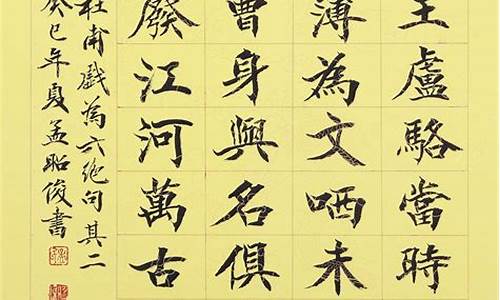 王盧駱當時
薄為文哂未
曹身與名俱
廢江河萬古
杜甫戲為六絕句其二
癸巳年夏孟昭俊書